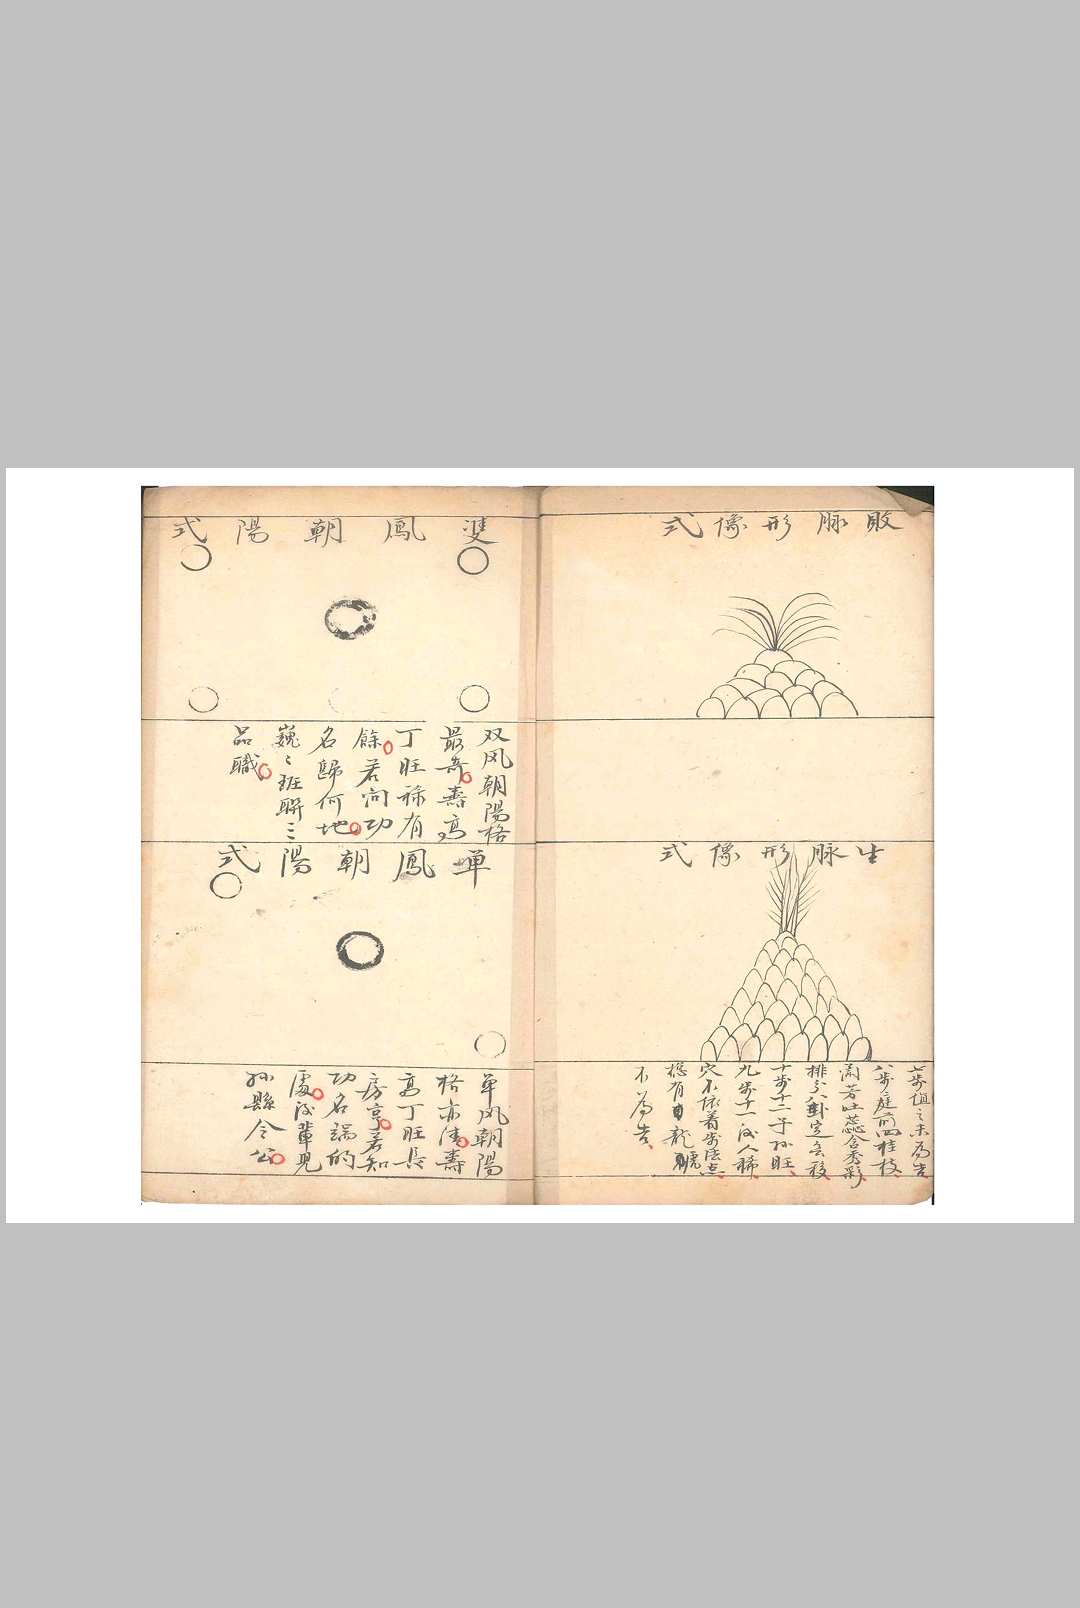 敗脉形像式
生脉形像式
七步值之未為吉
八步庭前四桂枝
蘭芳吐蕊含秀彩
排分八卦定玄移
十步十二子孙旺
九步十一後人稀
穴不依着步法点
縱有龍虎
不為吉
雙鳳朝陽式
双凤朝陽格
最奇壽高
丁旺禄有
餘若问功
名歸何地
巍々班聯三
品職
單鳳朝陽式
单凤朝陽
格亦清壽
高丁旺長
房亨若知
功名端的
處後輩児
孙縣令公